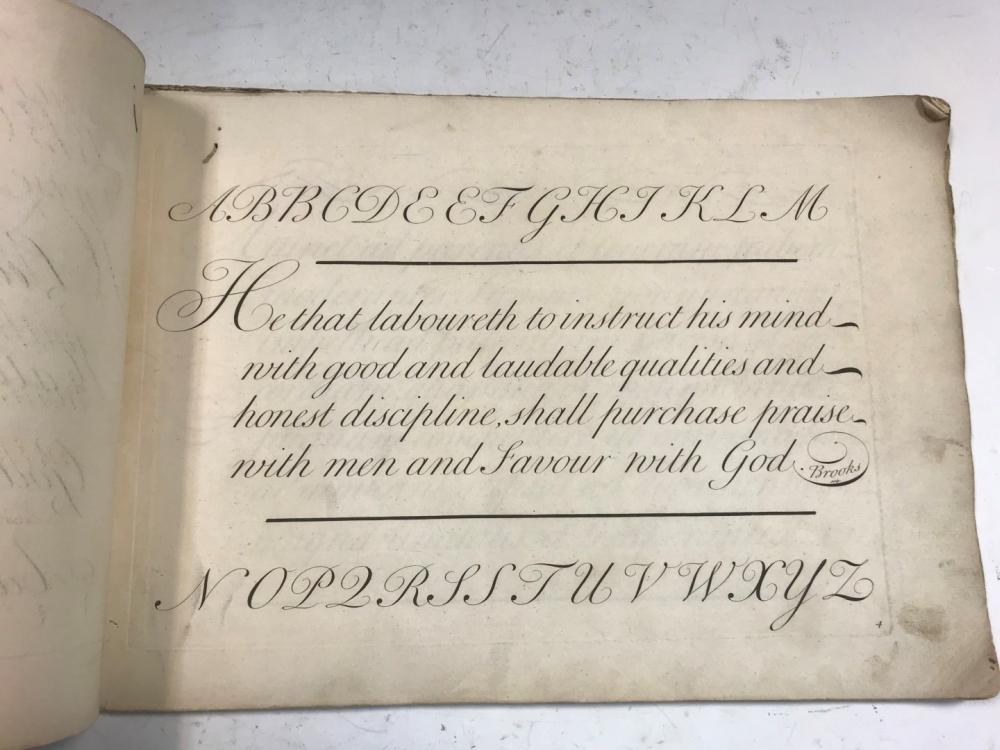 A B B C D E E F G H I K L M
He that laboureth to instruct his mind
with good and laudable qualities and
honest discipline, shall purchase praise
with men and Favour with God. Brooks
N O P Q R S S T U V W X Y Z
4